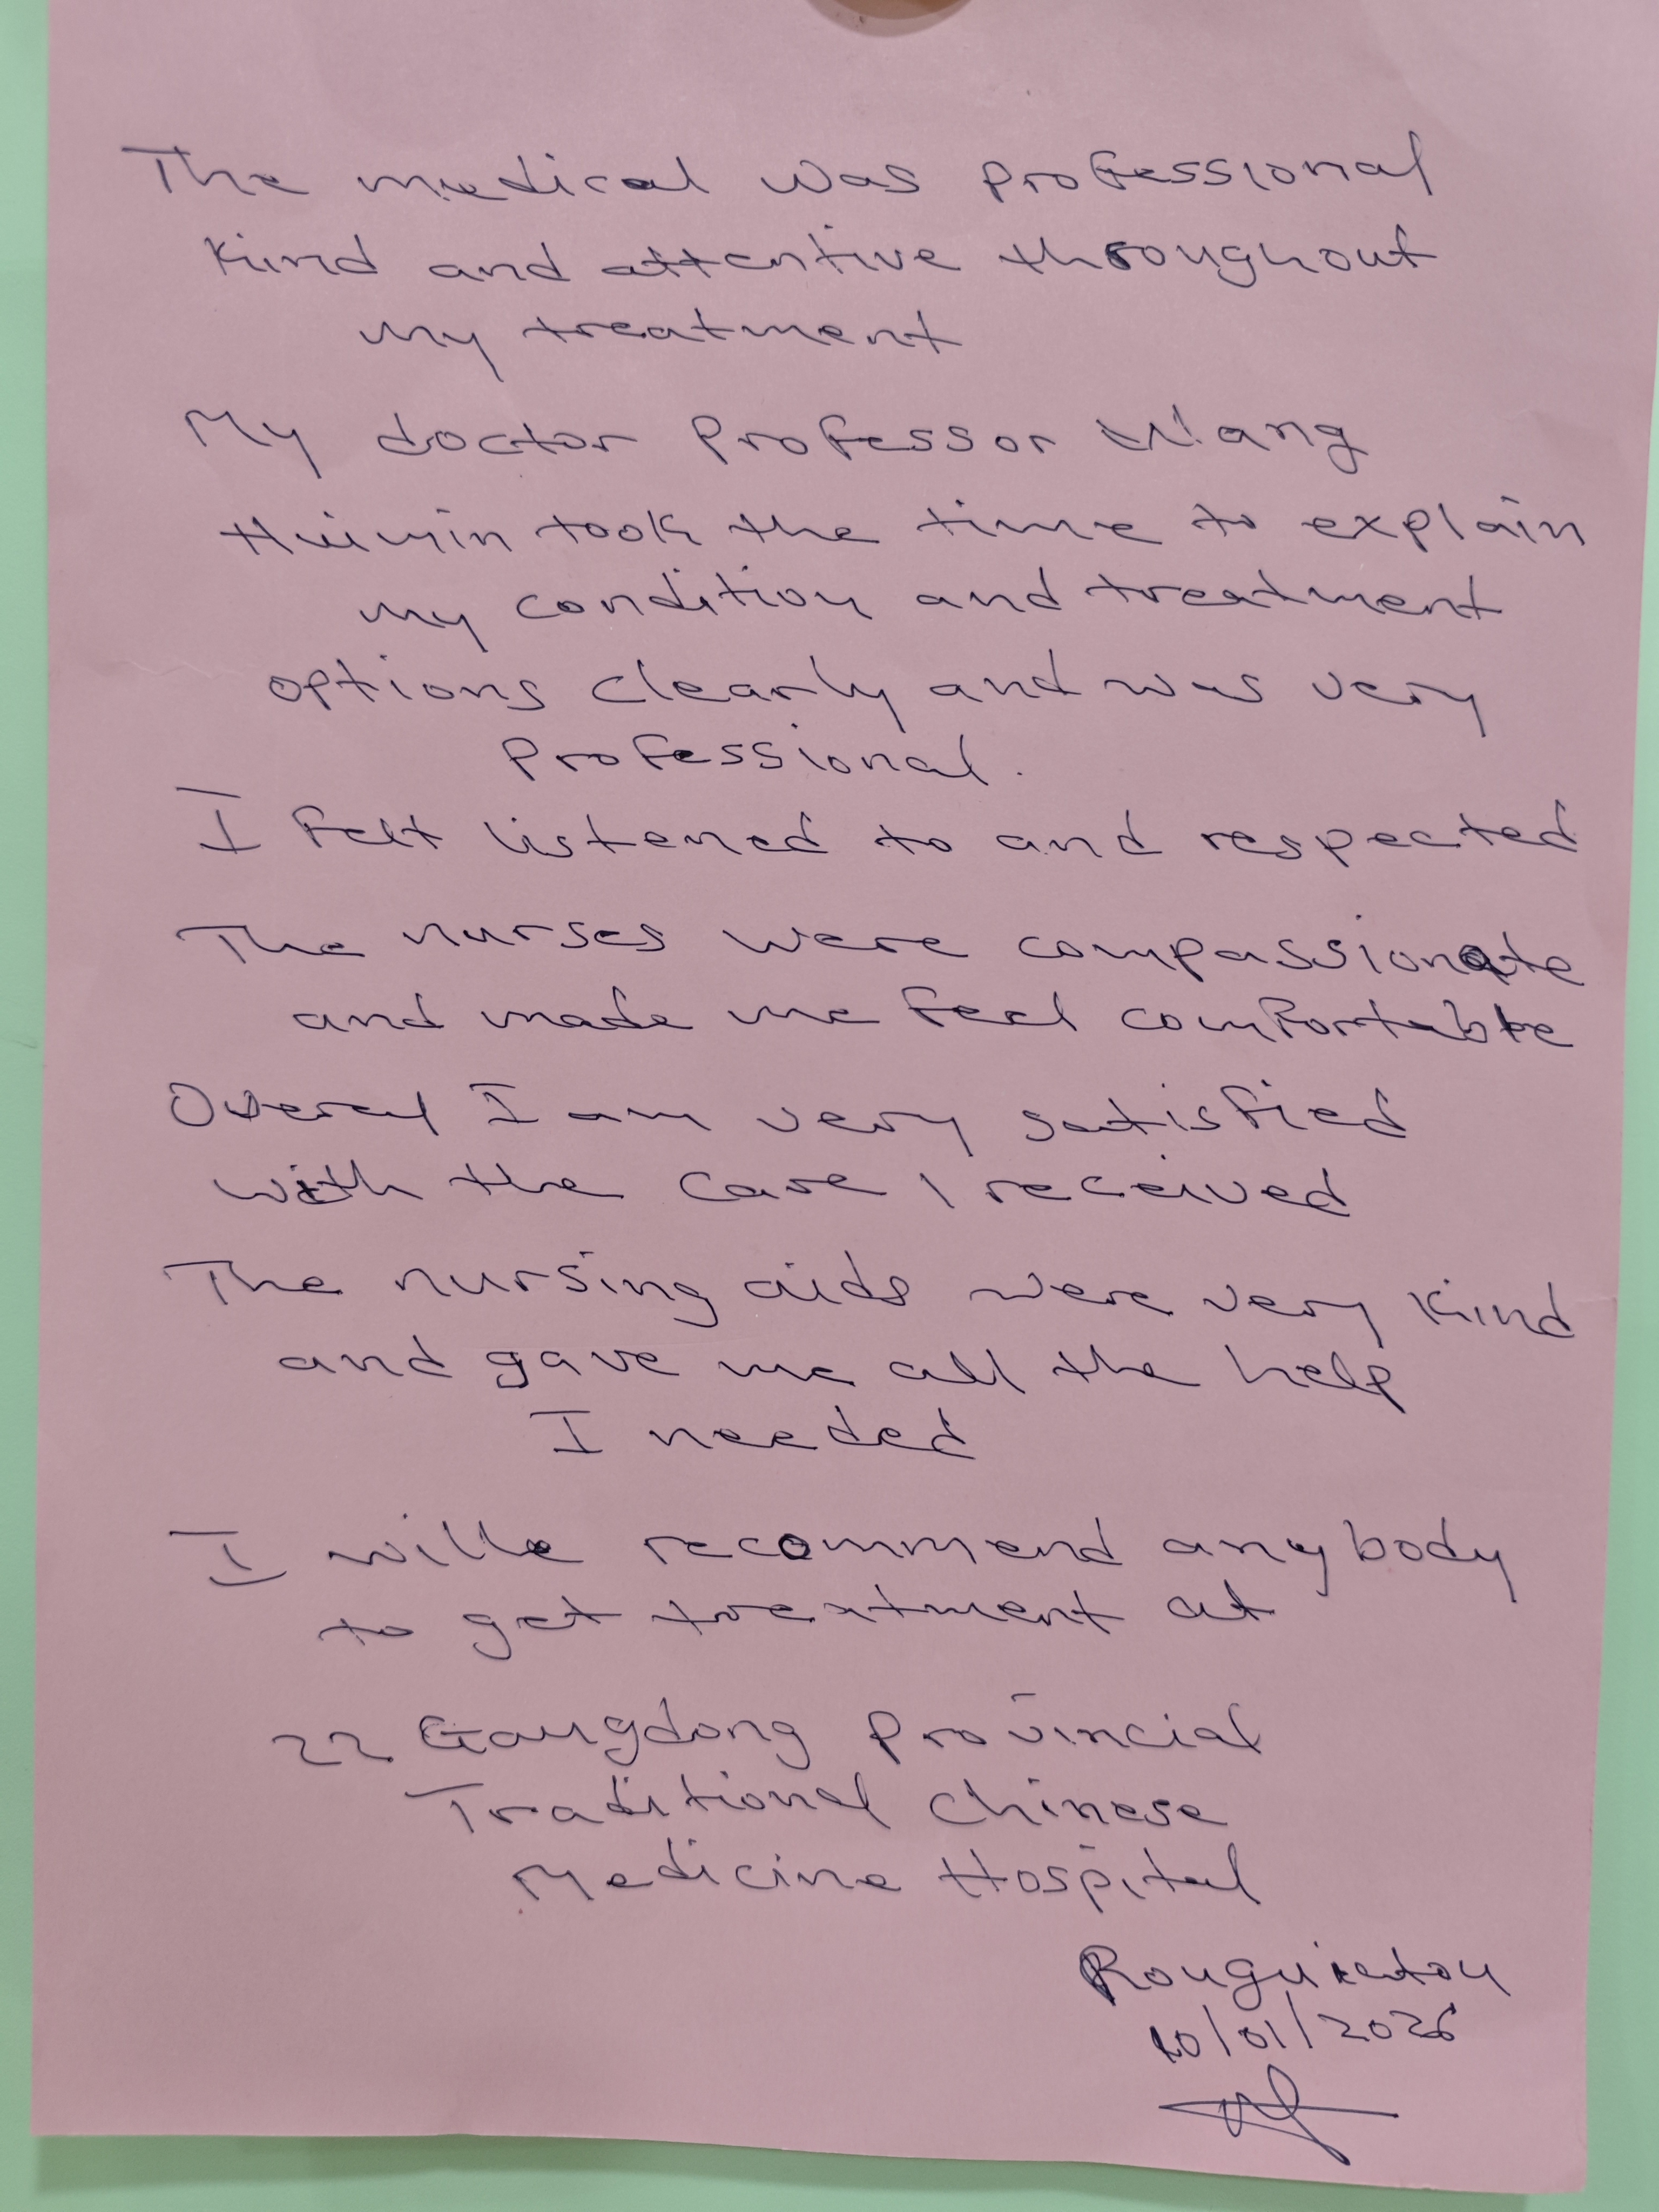 The medical was professional
kind and attentive throughout
my treatment
My doctor Professor Wang
Huimin took the time to explain
my condition and treatment
options clearly and was very
professional.
I felt listened to and respected
The nurses were compassionate
and made me feel comfortable
Overal I am very satisfied
with the care I received
The nursing aids were very kind
and gave me all the help
I needed
I will recommend anybody
to get treatment at
22 Gaugdong Provincial
Traditional Chinese
Medicine Hospital
Rouguiatou
10/01/2026